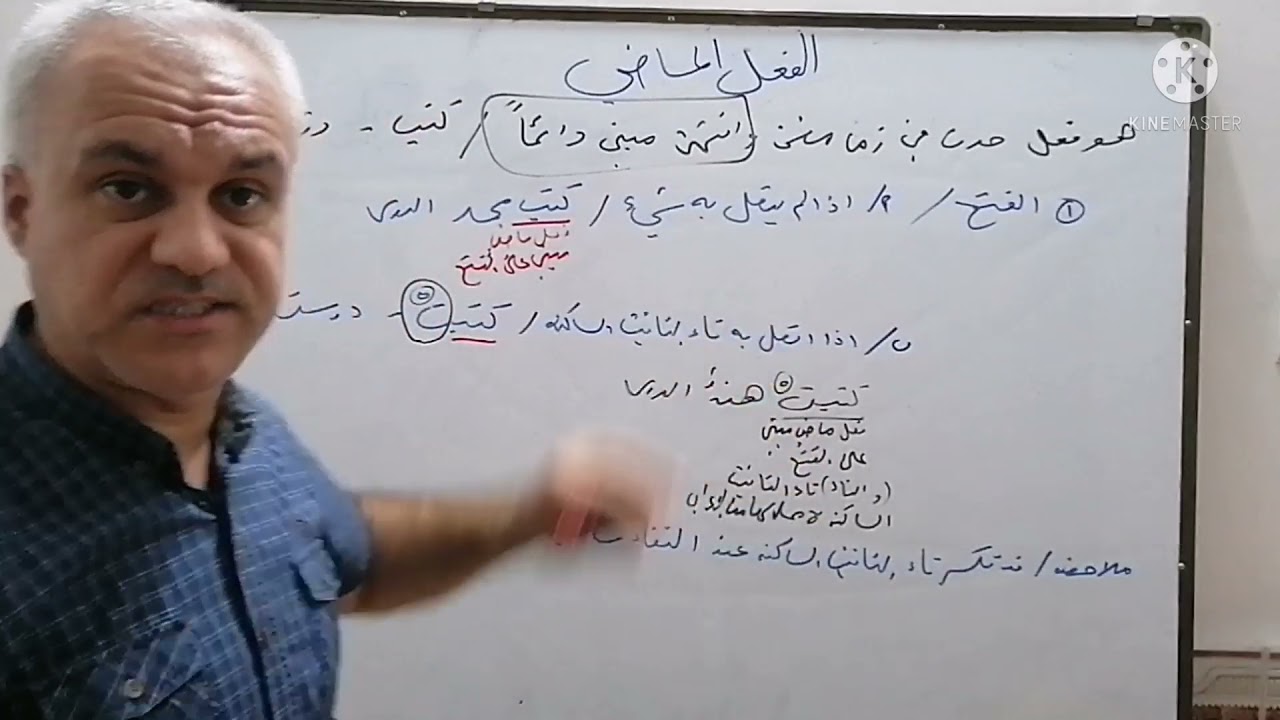 الفعل الماضي
هو فعل حدث في زمان انتهى مبني دائماً / كتب -
① الفتح / ٩/ اذا لم يتصل به شيء / كتب محمد الدرس
فعل ماض
مبني على الفتح
ب/ اذا اتصل به تاء التانيث الساكنة / كتبتْ - درست
كتبتْ هندُ الدرس
فعل ماض مبني
على الفتح
(والتاء) تاء التانيث
الساكنة لا محل لها من الاعراب
ملاحظة / قد تكسر تاء التانيث الساكنة عند التقاء
KINEMASTER